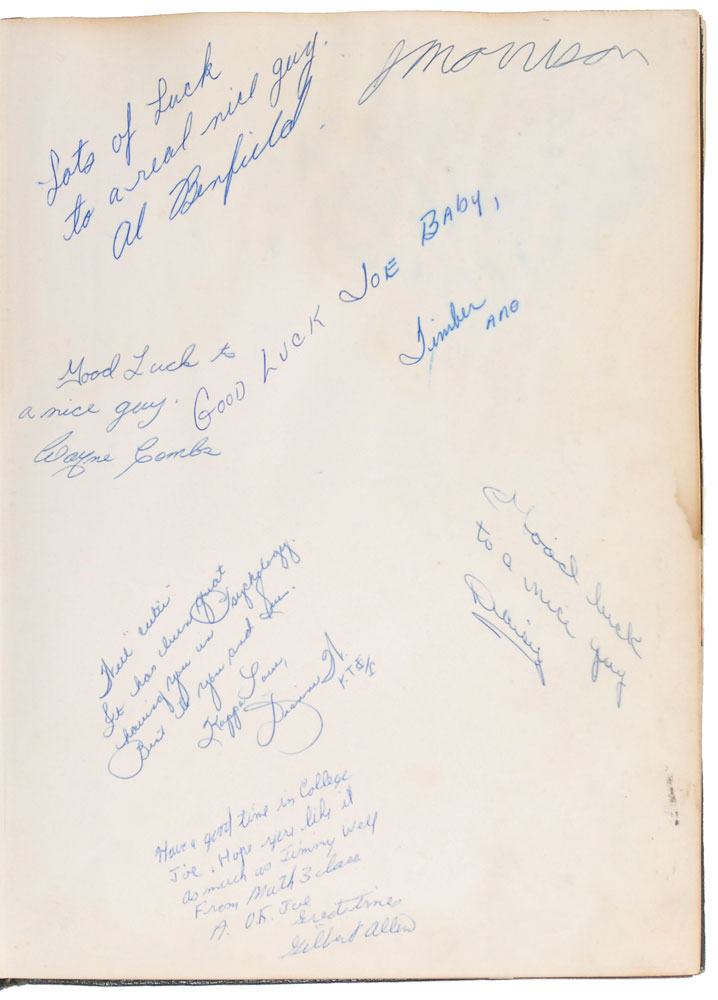 Lots of Luck
to a real nice guy.
Al Benfield.
J Morrison
GOOD LUCK JOE BABY,
Timber
Good Luck to
a nice guy.
Wayne Combs
Good luck
to a nice guy
Well "cutie"
It has been great
having you in Psychology.
Best to you and
Kappa Love,
Dianne H.
Have a good time in College
Joe. Hope you like it
as much as Jimmy Welf
From Math 3 class
A. O.K. Joe
Great times
Gilbert Allen